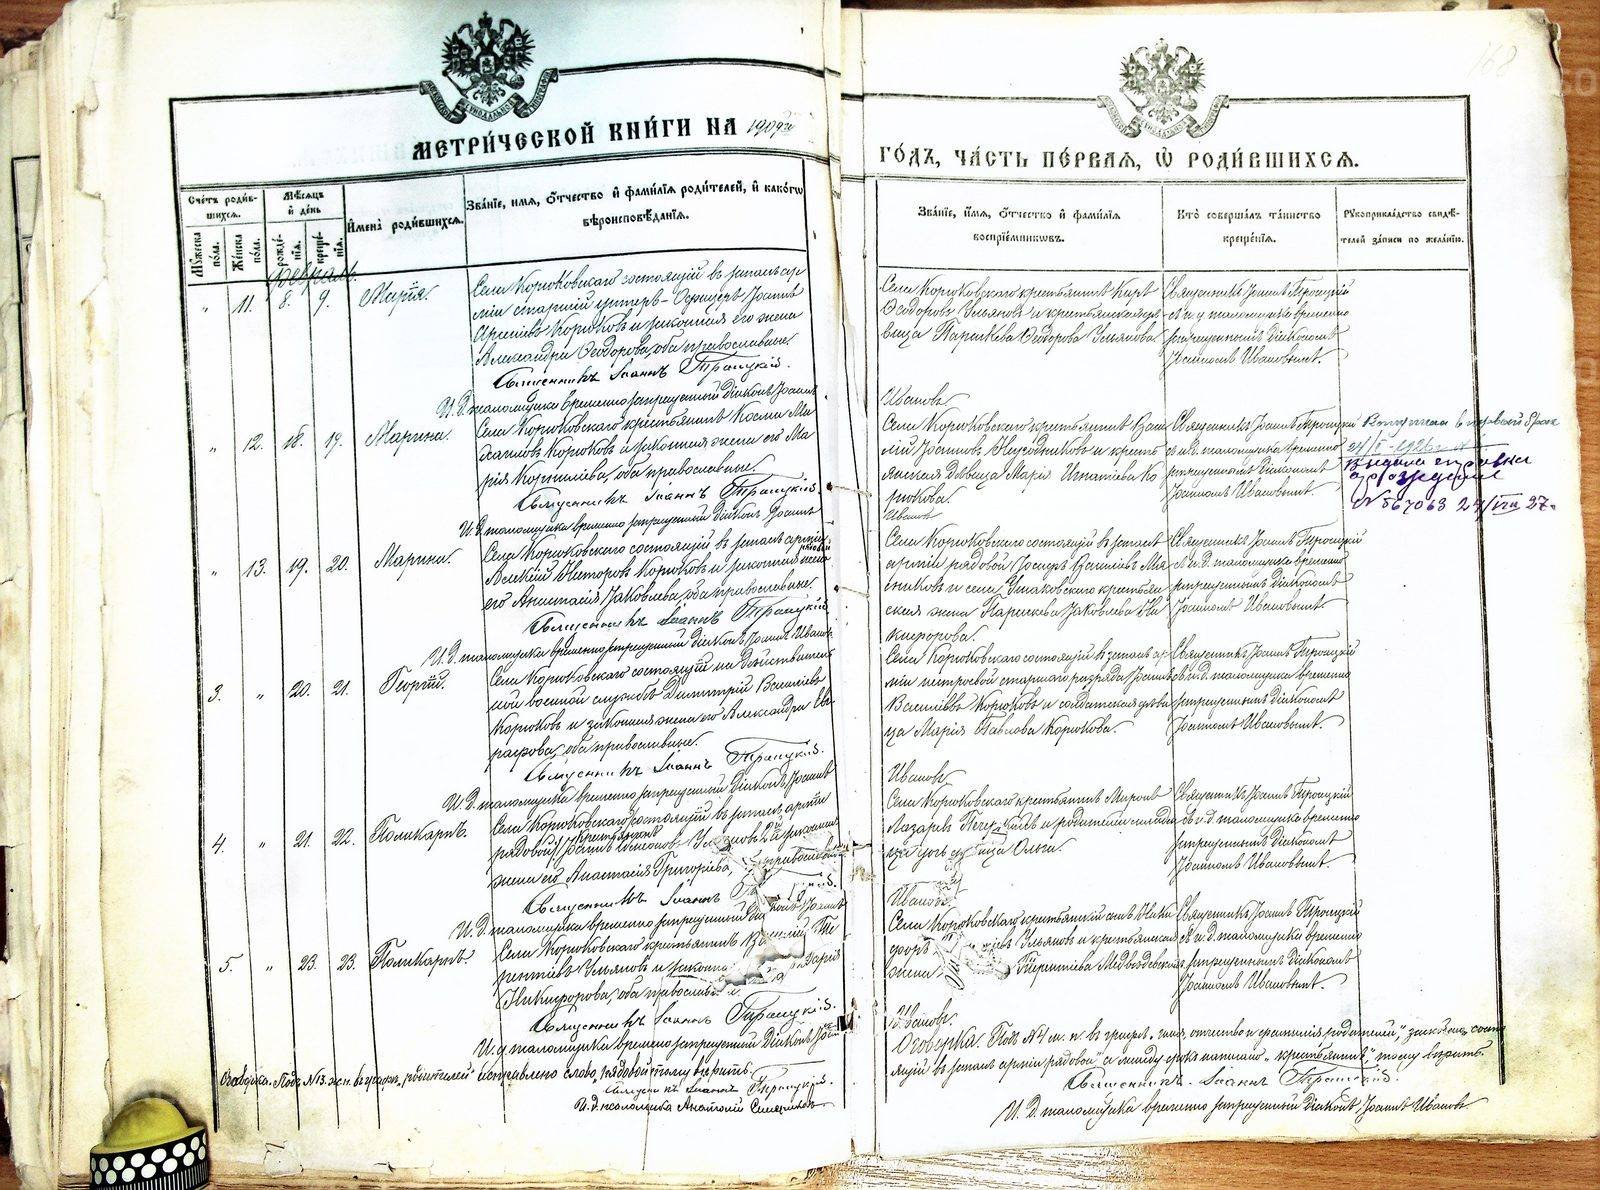 168
МЕТРИ́ЧЕСКОЙ КНИ́ГИ НА 1909й
ГО́ДЪ, ЧА́СТЬ ПЕ́РВАЯ, Ѡ РОДИ́ВШИХСЯ.
Сче́тъ роди́вшихся.
Мѣ́сяцъ и́ де́нь
И́мена роди́вшихся.
Зва́нїе, и́мя, ѻ҆́тчество и҆ фами́лїя роди́телей, и҆ како́гѡ вѣроисповѣ́данїя.
Му́жеска по́ла.
Же́нска по́ла.
рожде́нїя.
креще́нїя.
Зва́нїе, и́мя, ѻ҆́тчество и҆ фами́лїя воспрїе́мниковъ.
Кто̀ соверша́лъ та́инство креще́нїя.
Рукоприкла́дство свидѣ́телей за́писи по жела́нїю.
Февраль.
„ 11. 8. 9. Марія.
Села Корюковскаго состоящій въ запасѣ ар
міи старшій унтеръ-Офицеръ Іоаннъ
Корюковъ и законная его жена
Александра Ѳеодорова, оба православные.
Священникъ Іоаннъ Троицкій.
И. д. псаломщика временно запрещенный діаконъ Іоаннъ
Ивановъ
Села Корюковскаго крестьянинъ Киръ
Ѳеодоровъ Ульяновъ и крестьянская дѣ
вица Параскева Ѳеодорова Ульянова.
Священникъ Іоаннъ Троицкій
съ и. д. псаломщика временно
запрещеннымъ діакономъ
Іоанномъ Ивановымъ.
„ 12. 18. 19. Марина.
Села Корюковскаго крестьянинъ Косма Ми
хаиловъ Корюковъ и законная жена его Ма
рія Корнилієва, оба православные.
Священникъ Іоаннъ Троицкій.
И. д. псаломщика временно запрещенный діаконъ Іоаннъ
Ивановъ
Села Корюковскаго крестьянинъ Васи
лій Іоанновъ и кресть
янская дѣвица Марія Игнатіева Ко
рюкова.
Священникъ Іоаннъ Троицкій
съ и. д. псаломщика временно
запрещеннымъ діакономъ
Іоанномъ Ивановымъ.
Вступила в первый брак
Выдана справка
о рождении
№ 567063 24/VIII 37г.
„ 13. 19. 20. Марина.
Села Корюковскаго состоящій въ запасѣ арміи рядовой
Алексій Несторовъ Корюковъ и законная жена
его Анастасія Іаковлева, оба православные.
Священникъ Іоаннъ Троицкій
И. д. псаломщика временно запрещенный діаконъ Іоаннъ Ивановъ
Села Корюковскаго состоящій въ запасѣ
арміи рядовой Іосифъ Василіевъ Мя
сниковъ и села Ушаковскаго крестьян
ская жена Параскева Іаковлева Ни
кифорова.
Священникъ Іоаннъ Троицкій
съ и. д. псаломщика временно
запрещеннымъ діакономъ
Іоанномъ Ивановымъ
3. „ 20. 21. Георгій.
Села Корюковскаго состоящій на дѣйствитель
ной военной службѣ Димитрій Василіевъ
Корюковъ и законная жена его Александра Ев
графова, оба православные.
Священникъ Іоаннъ Троицкій.
И. д. псаломщика временно запрещенный діаконъ Іоаннъ
Ивановъ
Села Корюковскаго состоящій въ запасѣ ар
міи нестроевой старшаго разряда Іоаннъ
Василіевъ Корюковъ и солдатская дѣви
ца Марія Павлова Корюкова.
Священникъ Іоаннъ Троицкій
съ и. д. псаломщика временно
запрещеннымъ діакономъ
Іоанномъ Ивановымъ.
4. „ 21. 22. Поликарпъ.
Села Корюковскаго состоящій въ запасѣ арміи
рядовой крестьянинъ Іоаннъ Ульяновъ и законная
жена его Анастасія Григорієва,
Священникъ Іоаннъ
И. д. псаломщика временно запрещенный діаконъ Іоаннъ
Ивановъ
Села Корюковскаго крестьянинъ Миронъ
Лазаревъ и родителей младен
ца дочь дѣвица Ольга.
Священникъ Іоаннъ Троицкій
съ и. д. псаломщика временно
запрещеннымъ діакономъ
Іоанномъ Ивановымъ.
5. „ 23. 23. Поликарпъ.
Села Корюковскаго крестьянинъ Василій Те
рентіевъ Ульяновъ и законная
Никифорова, оба православные.
Священникъ Іоаннъ Троицкій.
И. д. псаломщика временно запрещенный діаконъ Іоаннъ
Ивановъ.
Села Корюковскаго крестьянскій сынъ Ники
форъ Ульяновъ и крестьянская
жена Терентіева Медвѣдевская
Священникъ Іоаннъ Троицкій
съ и. д. псаломщика временно
запрещеннымъ діакономъ
Іоанномъ Ивановымъ.
Оговорка. Подъ №13 ж. п. въ графѣ „родителей“ исправлено слово „рядовой“ тому вѣрить.
Священникъ Іоаннъ Троицкій.
И. д. псаломщика Анатолій
Оговорка. Подъ №4 м. п. въ графѣ „имя, отчество и фамилія родителей“, заскоблено „состо
ящій въ запасѣ арміи рядовой“ а между строкъ написано „крестьянинъ“, тому вѣрить.
Священникъ Іоаннъ Троицкій.
И. д. псаломщика временно запрещенный діаконъ Іоаннъ Ивановъ